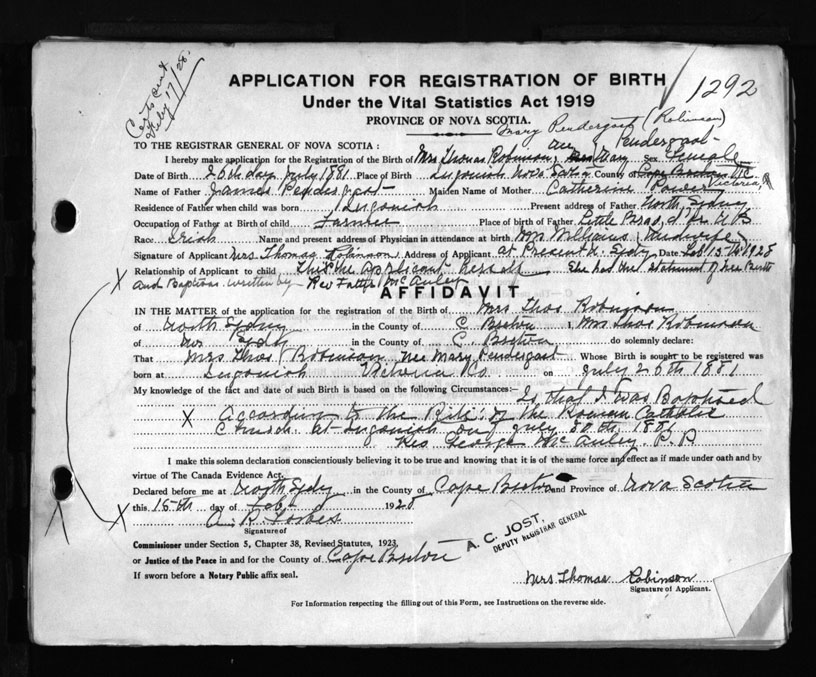 Cert sent
Feby 17/28.
APPLICATION FOR REGISTRATION OF BIRTH
1292
Under the Vital Statistics Act 1919
PROVINCE OF NOVA SCOTIA.
Mary Pendergast (Robinson)
TO THE REGISTRAR GENERAL OF NOVA SCOTIA: Pendergast
I hereby make application for the Registration of the Birth of Mrs Thomas Robinson, Mary Sex Female
Date of Birth 26th day July 1881 Place of Birth Ingonish Nova Scotia County of Cape Breton Victoria
Name of Father James Pendergast Maiden Name of Mother Catherine Power
Residence of Father when child was born Ingonish Present address of Father North Sydney
Occupation of Father at Birth of child Farmer Place of birth of Father Little
Race Irish Name and present address of Physician in attendance at birth Mrs Williams (Midwife)
Signature of Applicant Mrs. Thomas Robinson Address of Applicant at Present N. Sydney Date Feb 15th 1928
Relationship of Applicant to child This the Applicant herself She has the Statement of her Birth
X and Baptism written by Rev Father McAuley
AFFIDAVIT
IN THE MATTER of the application for the registration of the Birth of Mrs Thos Robinson
of North Sydney in the County of C. Breton I, Mrs Thos Robinson
of Nor Sydy in the County of C. Breton do solemnly declare:
That Mrs Thos Robinson nee Mary Pendergast Whose Birth is sought to be registered was
born at Ingonish Victoria Co. on July 26th 1881
My knowledge of the fact and date of such Birth is based on the following Circumstances:—
Is that I was Baptised
X According to the Rite of the Roman Catholic
Church at Ingonish on July 30th 1881
Rev. George McAuley. P.P
I make this solemn declaration conscientiously believing it to be true and knowing that it is of the same force and effect as if made under oath and by
virtue of The Canada Evidence Act.
Declared before me at North Sydy in the County of Cape Breton and Province of Nova Scotia
this 15th day of Feb 1928
X A. R. Forbes
Signature of
Commissioner under Section 5, Chapter 38, Revised Statutes, 1923,
or Justice of the Peace in and for the County of Cape Breton
A. C. JOST,
DEPUTY REGISTRAR GENERAL
If sworn before a Notary Public affix seal.
Mrs Thomas Robinson
Signature of Applicant.
For Information respecting the filling out of this Form, see Instructions on the reverse side.